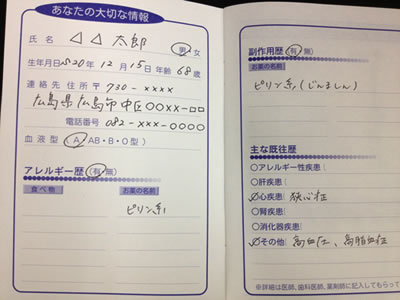 あなたの大切な情報
氏名 △△ 太郎 男・女
生年月日 S20年12月15日 年齢68歳
連絡先住所 〒730-××××
広島県広島市中区○○××-□□
電話番号 082-×××-○○○○
血液型 (A・AB・B・O型)
アレルギー歴(有・無)
食べ物 お薬の名前
ピリン系
副作用歴(有・無)
お薬の名前
ピリン系(じんましん)
主な既往歴
○アレルギー性疾患
○肝疾患
○心疾患 狭心症
○腎疾患
○消化器疾患
○その他 高血圧、高脂血症
※詳細は医師、歯科医師、薬剤師に記入してもらって